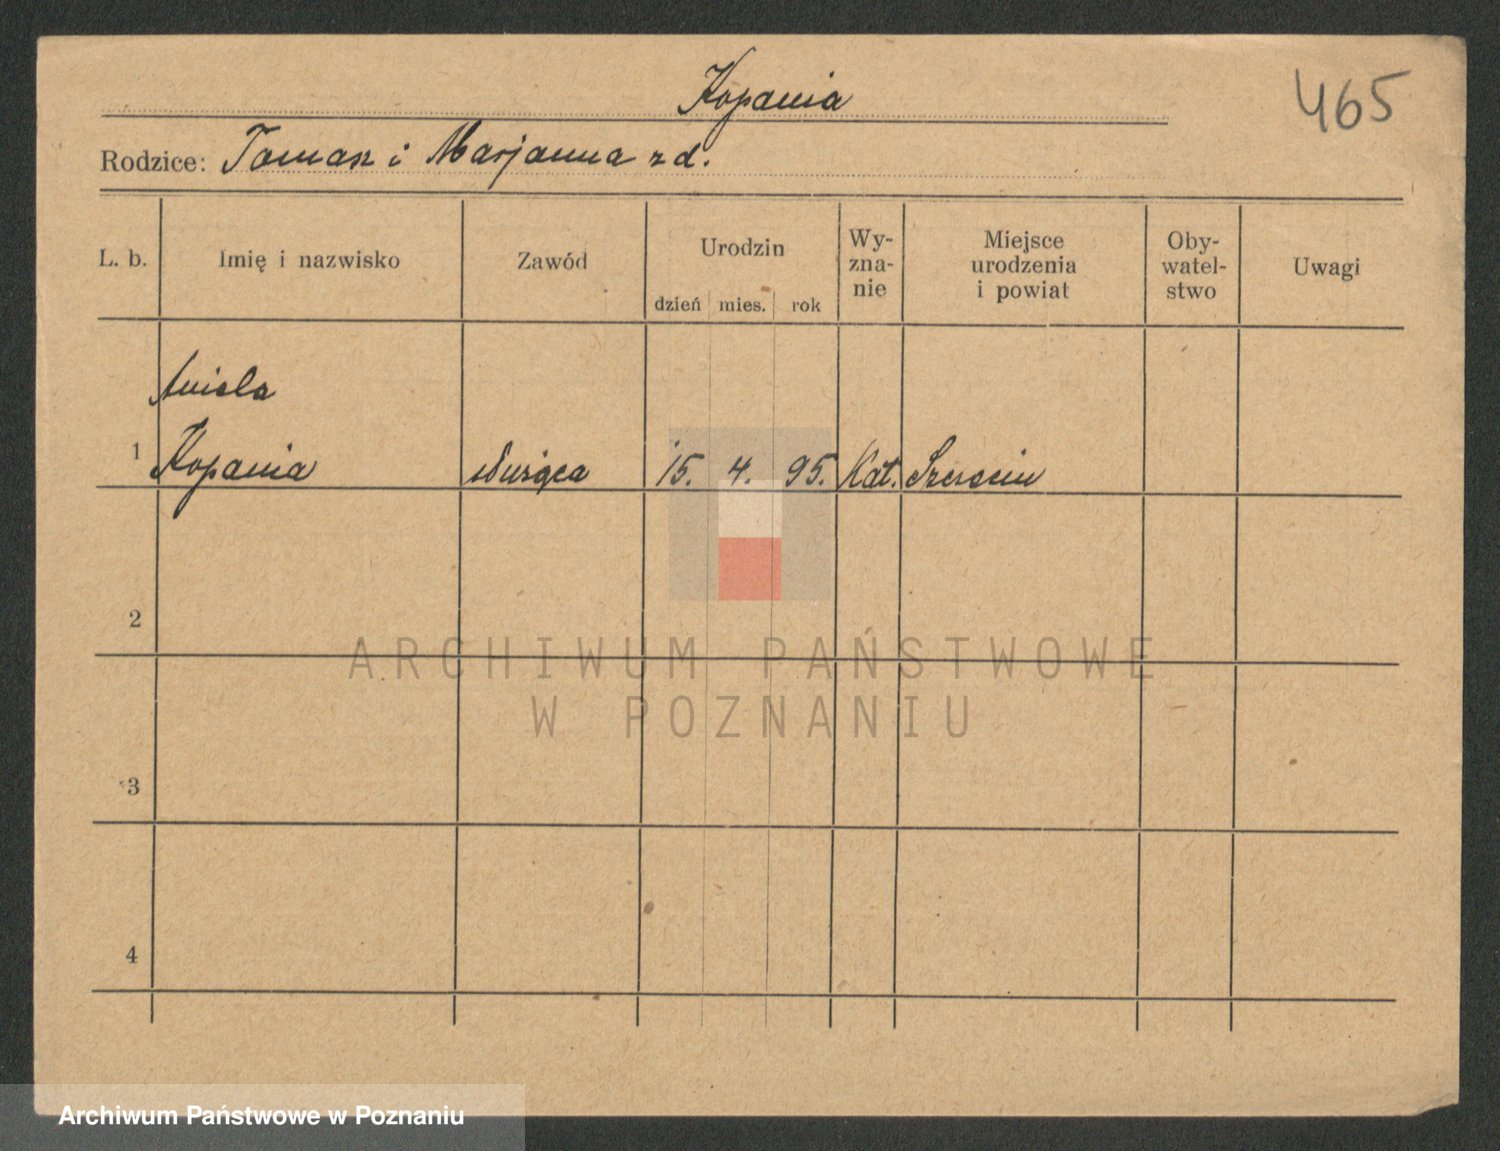 Kopania
465
Rodzice: Tomasz i Marjanna z d.
L. b.
Imię i nazwisko
Zawód
Urodzin
dzień mies. rok
Wy-
zna-
nie
Miejsce
urodzenia
i powiat
Oby-
watel-
stwo
Uwagi
Aniela
1 Kopania służąca 15. 4. 95. Kat.
2
ARCHIWUM PAŃSTWOWE
W POZNANIU
3
4
Archiwum Państwowe w Poznaniu